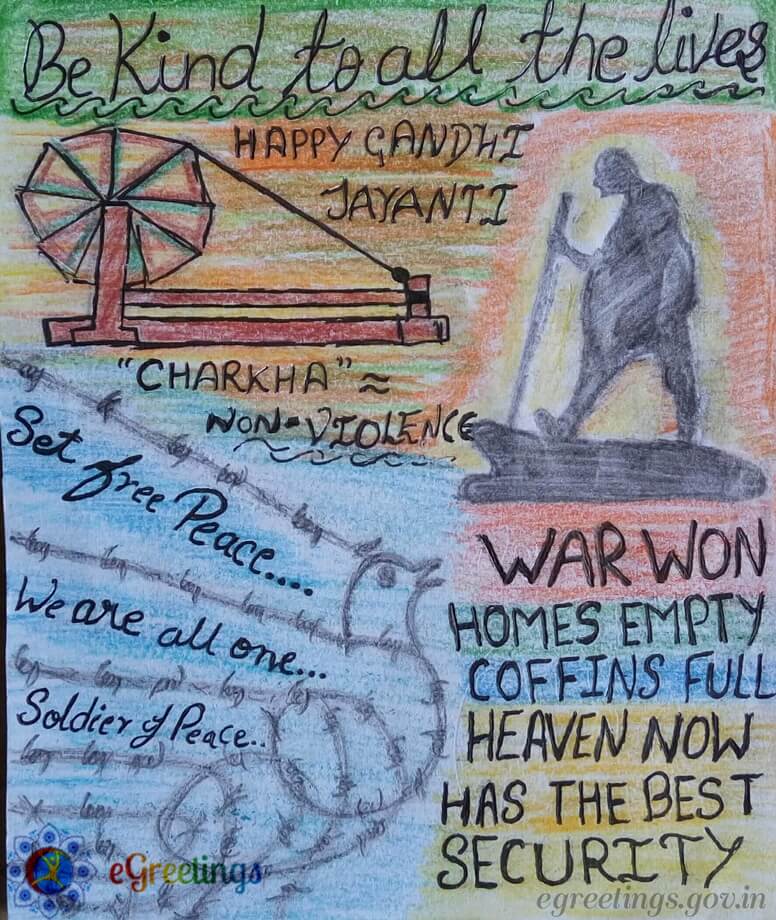 Be Kind to all the lives
HAPPY GANDHI
JAYANTI
"CHARKHA" ≈
NON-VIOLENCE
Set free Peace....
We are all one...
Soldier of Peace..
WAR WON
HOMES EMPTY
COFFINS FULL
HEAVEN NOW
HAS THE BEST
SECURITY
eGreetings
egreetings.gov.in